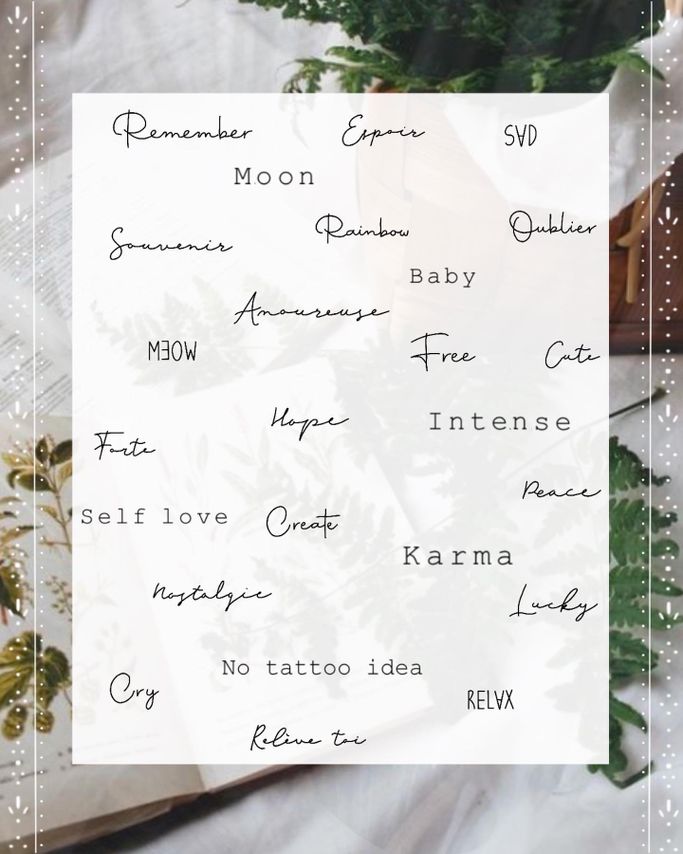 Remember Espoir SAD
Moon
Souvenir Rainbow Oublier
Baby
Amoureuse
MEOW Free Cute
Hope Intense
Forte
Peace
Self love Create
Karma
Nostalgie Lucky
No tattoo idea
Cry RELAX
Relève toi